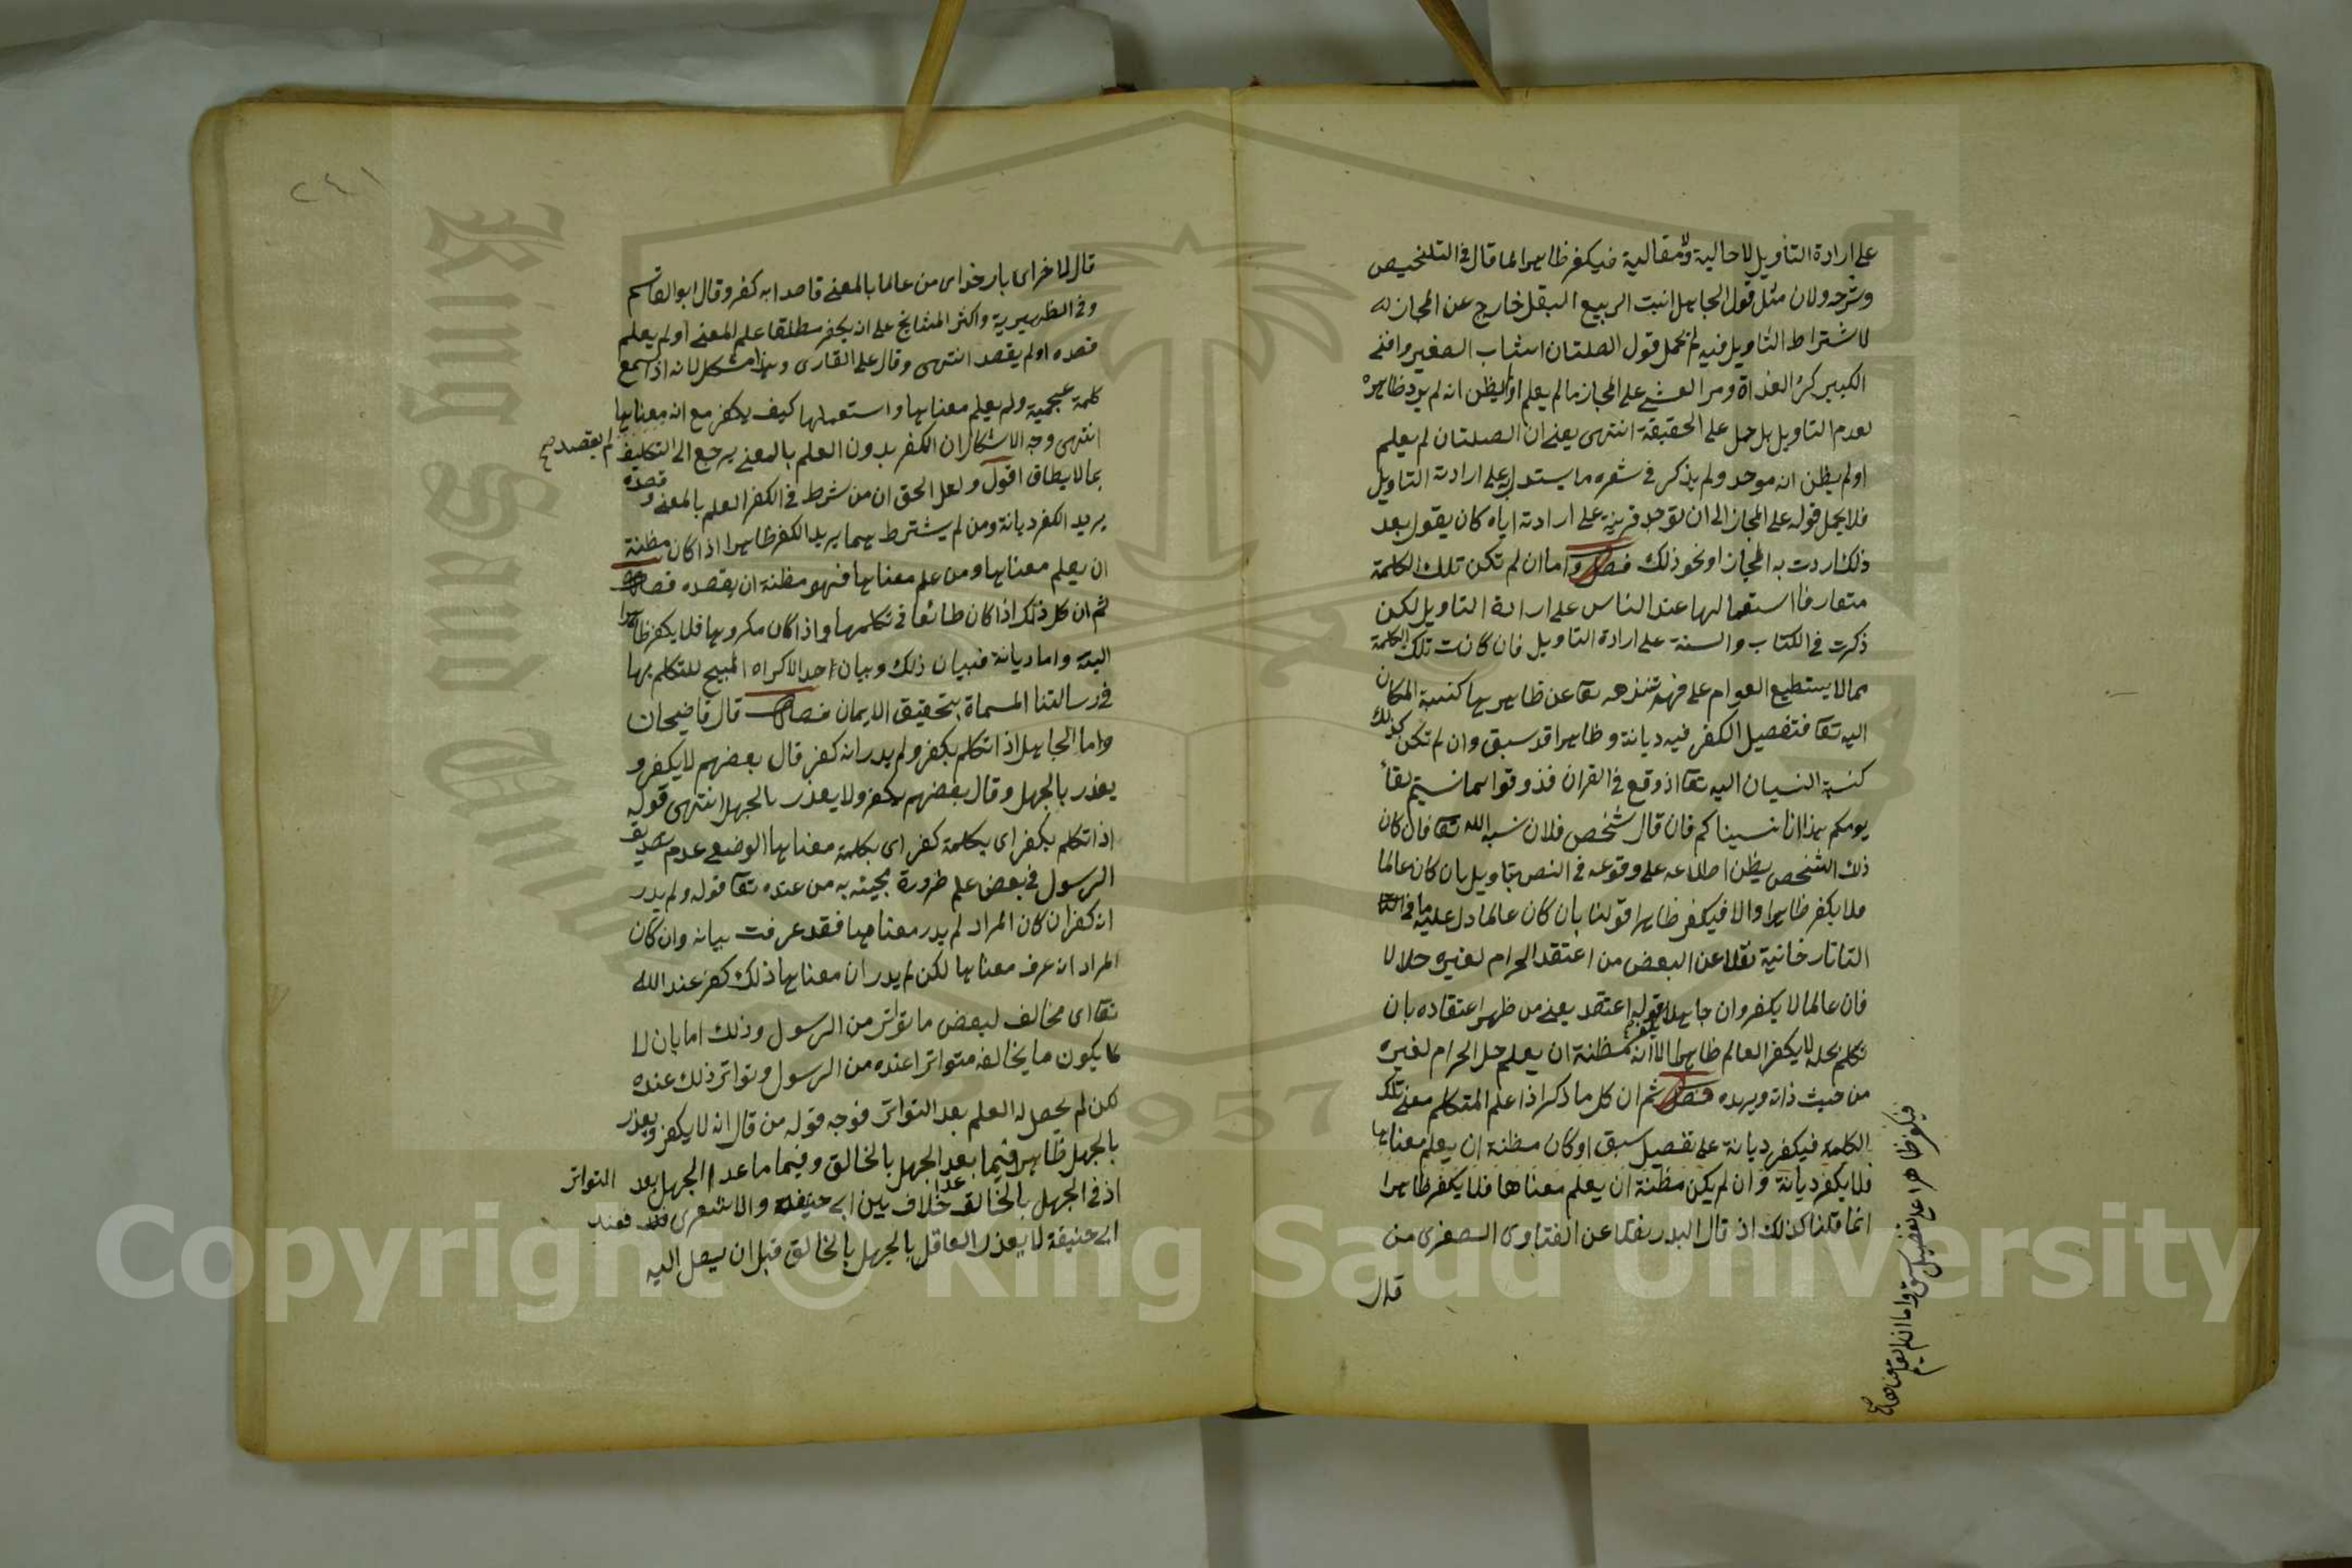 على ارادة التأويل لا حالية ولا مقالية فيكفر ظاهرا لما قال فى التلخيص
وشرحه ولان مثل قول الجاهل انبت الربيع البقل خارج عن المجاز
لاشتراط التاويل فيه لم يحمل قول الصلتان اشاب الصغير وافنى
الكبير كر الغداة ومر العشى على المجاز ما لم يعلم او يظن انه لم يرد ظاهره
لعدم التاويل بل حمل على الحقيقة انتهى يعنى ان الصلتان لم يعلم
او لم يظن انه موحد ولم يذكر فى شعره ما يستدل به على ارادة التاويل
فلا يحمل قوله على المجاز الى ان توجد قرينة على ارادته اياه كان يقول بعد
ذلك اردت به المجاز او نحو ذلك فصل واما ان لم تكن تلك الكلمة
متعارفا استعمالها عند الناس على ارادة التاويل لكن
ذكرت فى الكتاب والسنة على ارادة التاويل فان كانت تلك الكلمة
مما لا يستطيع العوام على فهم تنزهه تعا عن ظاهرها كنسبة المكان
اليه تعا فتفصيل الكفر فيه ديانة وظاهرا قد سبق وان لم تكن كذلك
كنسبة النسيان اليه تعا اذ وقع فى القران فذوقوا بما نسيتم لقاء
يومكم هذا انا نسيناكم فان قال شخص فلان نسيه الله تعا فان كان
ذلك الشخص يظن اطلاعه على وقوعه فى النص بتاويل بان كان عالما
فلا يكفر ظاهرا والا فيكفر ظاهرا قولنا بان كان عالما دل عليه ما فى
التاتارخانية نقلا عن البعض من اعتقد الحرام لغيره حلالا
فان عالما لا يكفر وان جاهلا يكفر قوله اعتقد يعنى من ظهر اعتقاده بان
تكلم بحله لا يكفر العالم ظاهرا لانه مظنة ان يعلم حل الحرام لغيره
من حيث ذاته ويريده فصل ثم ان كل ما ذكر اذا علم المتكلم معنى تلك
الكلمة فيكفر ديانة على تفصيل سبق او كان مظنة ان يعلم معناها
فلا يكفر ديانة وان لم يكن مظنة ان يعلم معناها فلا يكفر ظاهرا
انما قلنا كذلك اذ قال البدر نقلا عن الفتاوى الصغرى من
قال
فيكفر ظاهرا على تفصيل سبق واما ان لم يعلم معناها صح
٢٤١
قال لاخر اى بار خداى من عالما بالمعنى قاصدا به كفر وقال ابو القاسم
وفى الظهيرية واكثر المشايخ على ان يكفر مطلقا علم المعنى او لم يعلم
قصده او لم يقصد انتهى وقال على القارى وهذا مشكل لانه اذا سمع
كلمة عجمية ولم يعلم معناها واستعملها كيف يكفر مع انه معناها
لم يقصد صح
انتهى وجه الاشكال ان الكفر بدون العلم بالمعنى يرجع الى التكليف
بما لا يطاق اقول ولعل الحق ان من شرط فى الكفر العلم بالمعنى وقصده
يريد الكفر ديانة ومن لم يشترط هما يريد الكفر ظاهرا اذا كان مظنة
ان يعلم معناها ومن علم معناها فهو مظنة ان يقصده فصل
ثم ان كل ذلك اذا كان طائعا فى تكلمها واذا كان مكروها فلا يكفر ظاهرا
البتة واما ديانة فبيان ذلك وبيان احد الاكراه المبيح للتكلم بها
فى رسالتنا المسماة بتحقيق الايمان فصل قال قاضيخان
واما الجاهل اذا تكلم بكفر ولم يدر انه كفر قال بعضهم لا يكفر و
يعذر بالجهل وقال بعضهم يكفر ولا يعذر بالجهل انتهى قوله
اذا تكلم بكفر اى بكلمة كفر اى بكلمة معناها الوضعى عدم تصديق
الرسول فى بعض علم ضرورة مجيئه به من عنده تعا قوله ولم يدر
انه كفر ان كان المراد لم يدر معناها فقد عرفت بيانه وان كان
المراد انه عرف معناها لكن لم يدر ان معناها ذلك كفر عند الله
تعا اى مخالف لبعض ما تواتر من الرسول وذلك اما بان لا
يكون ما يخالفه متواترا عنده من الرسول وتواتر ذلك عنده
لكن لم يحصل له العلم بعد التواتر فوجه قوله من قال انه لا يكفر ويعذر
بالجهل ظاهر فيما بعد الجهل بالخالق وفيما ما عدا الجهل بعد التواتر
اذ فى الجهل بالخالق خلاف بين ابى حنيفة والاشعرى فعند
ابى حنيفة لا يعذر العاقل بالجهل بالخالق قبل ان يصل اليه
King Saud University
1957
Copyright © King Saud University